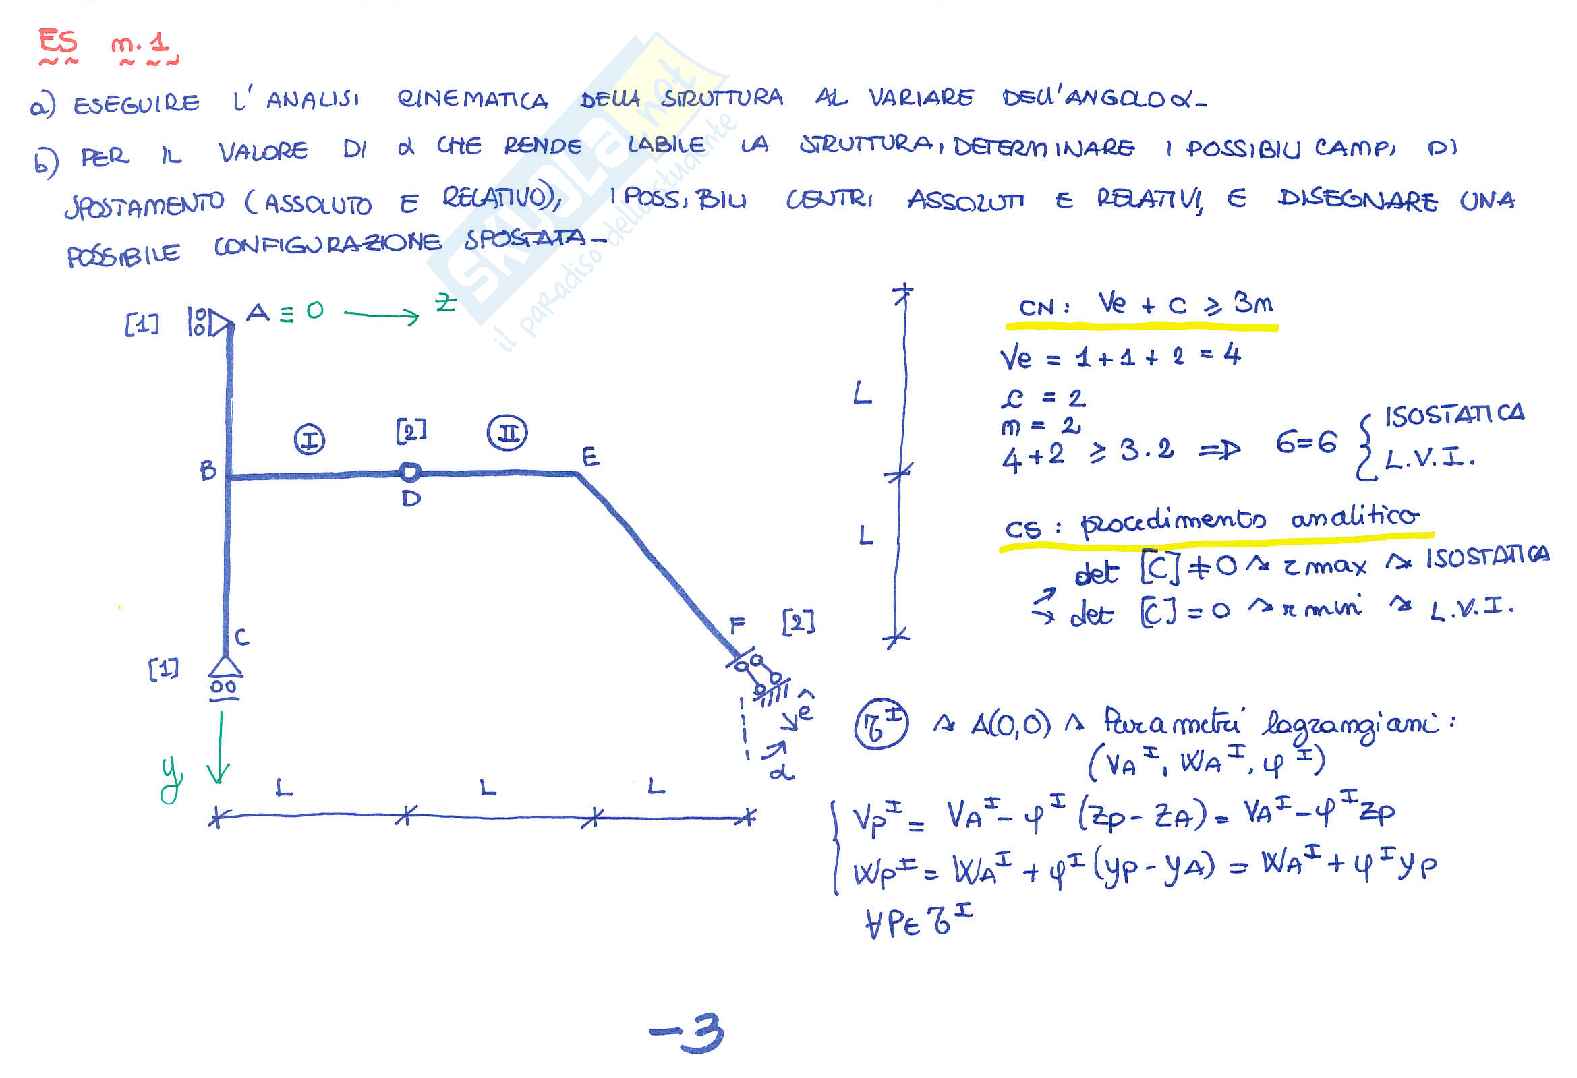 ES n.1
a) ESEGUIRE L'ANALISI CINEMATICA DELLA STRUTTURA AL VARIARE DELL'ANGOLO α-
b) PER IL VALORE DI α CHE RENDE LABILE LA STRUTTURA, DETERMINARE I POSSIBILI CAMPI DI
SPOSTAMENTO (ASSOLUTO E RELATIVO), I POSSIBILI CENTRI ASSOLUTI E RELATIVI, E DISEGNARE UNA
POSSIBILE CONFIGURAZIONE SPOSTATA-
SKUOLA.net
il paradiso dello studente
[1] A ≡ O z
I [2] II
B D E
C
[1]
F [2]
ê
α
y
L L L
L
L
CN: Ve + C ⩾ 3m
Ve = 1+1+2 = 4
C = 2
m = 2
4+2 ⩾ 3·2 ⇒ 6=6 { ISOSTATICA
L.V.I.
CS: procedimento analitico
det [C] ≠ 0 ↝ r max ↝ ISOSTATICA
det [C] = 0 ↝ r min ↝ L.V.I.
τᴵ ↝ A(0,0) ↝ Parametri lagrangiani:
(VAᴵ, WAᴵ, φᴵ)
VPᴵ = VAᴵ - φᴵ (zP - zA) = VAᴵ - φᴵ zP
WPᴵ = WAᴵ + φᴵ (yP - yA) = WAᴵ + φᴵ yP
∀P∈ τᴵ
-3